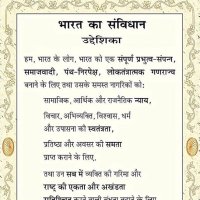 भारत का संविधान
उद्देशिका
हम, भारत के लोग, भारत को एक संपूर्ण प्रभुत्व-संपन्न,
समाजवादी, पंथ-निरपेक्ष, लोकतंत्रात्मक गणराज्य
बनाने के लिए तथा उसके समस्त नागरिकों को:
सामाजिक, आर्थिक और राजनैतिक न्याय,
विचार, अभिव्यक्ति, विश्वास, धर्म
और उपासना की स्वतंत्रता,
प्रतिष्ठा और अवसर की समता
प्राप्त कराने के लिए,
तथा उन सब में व्यक्ति की गरिमा और
राष्ट्र की एकता और अखंडता
सुनिश्चित करने वाली बंधुता बढ़ाने के लिए